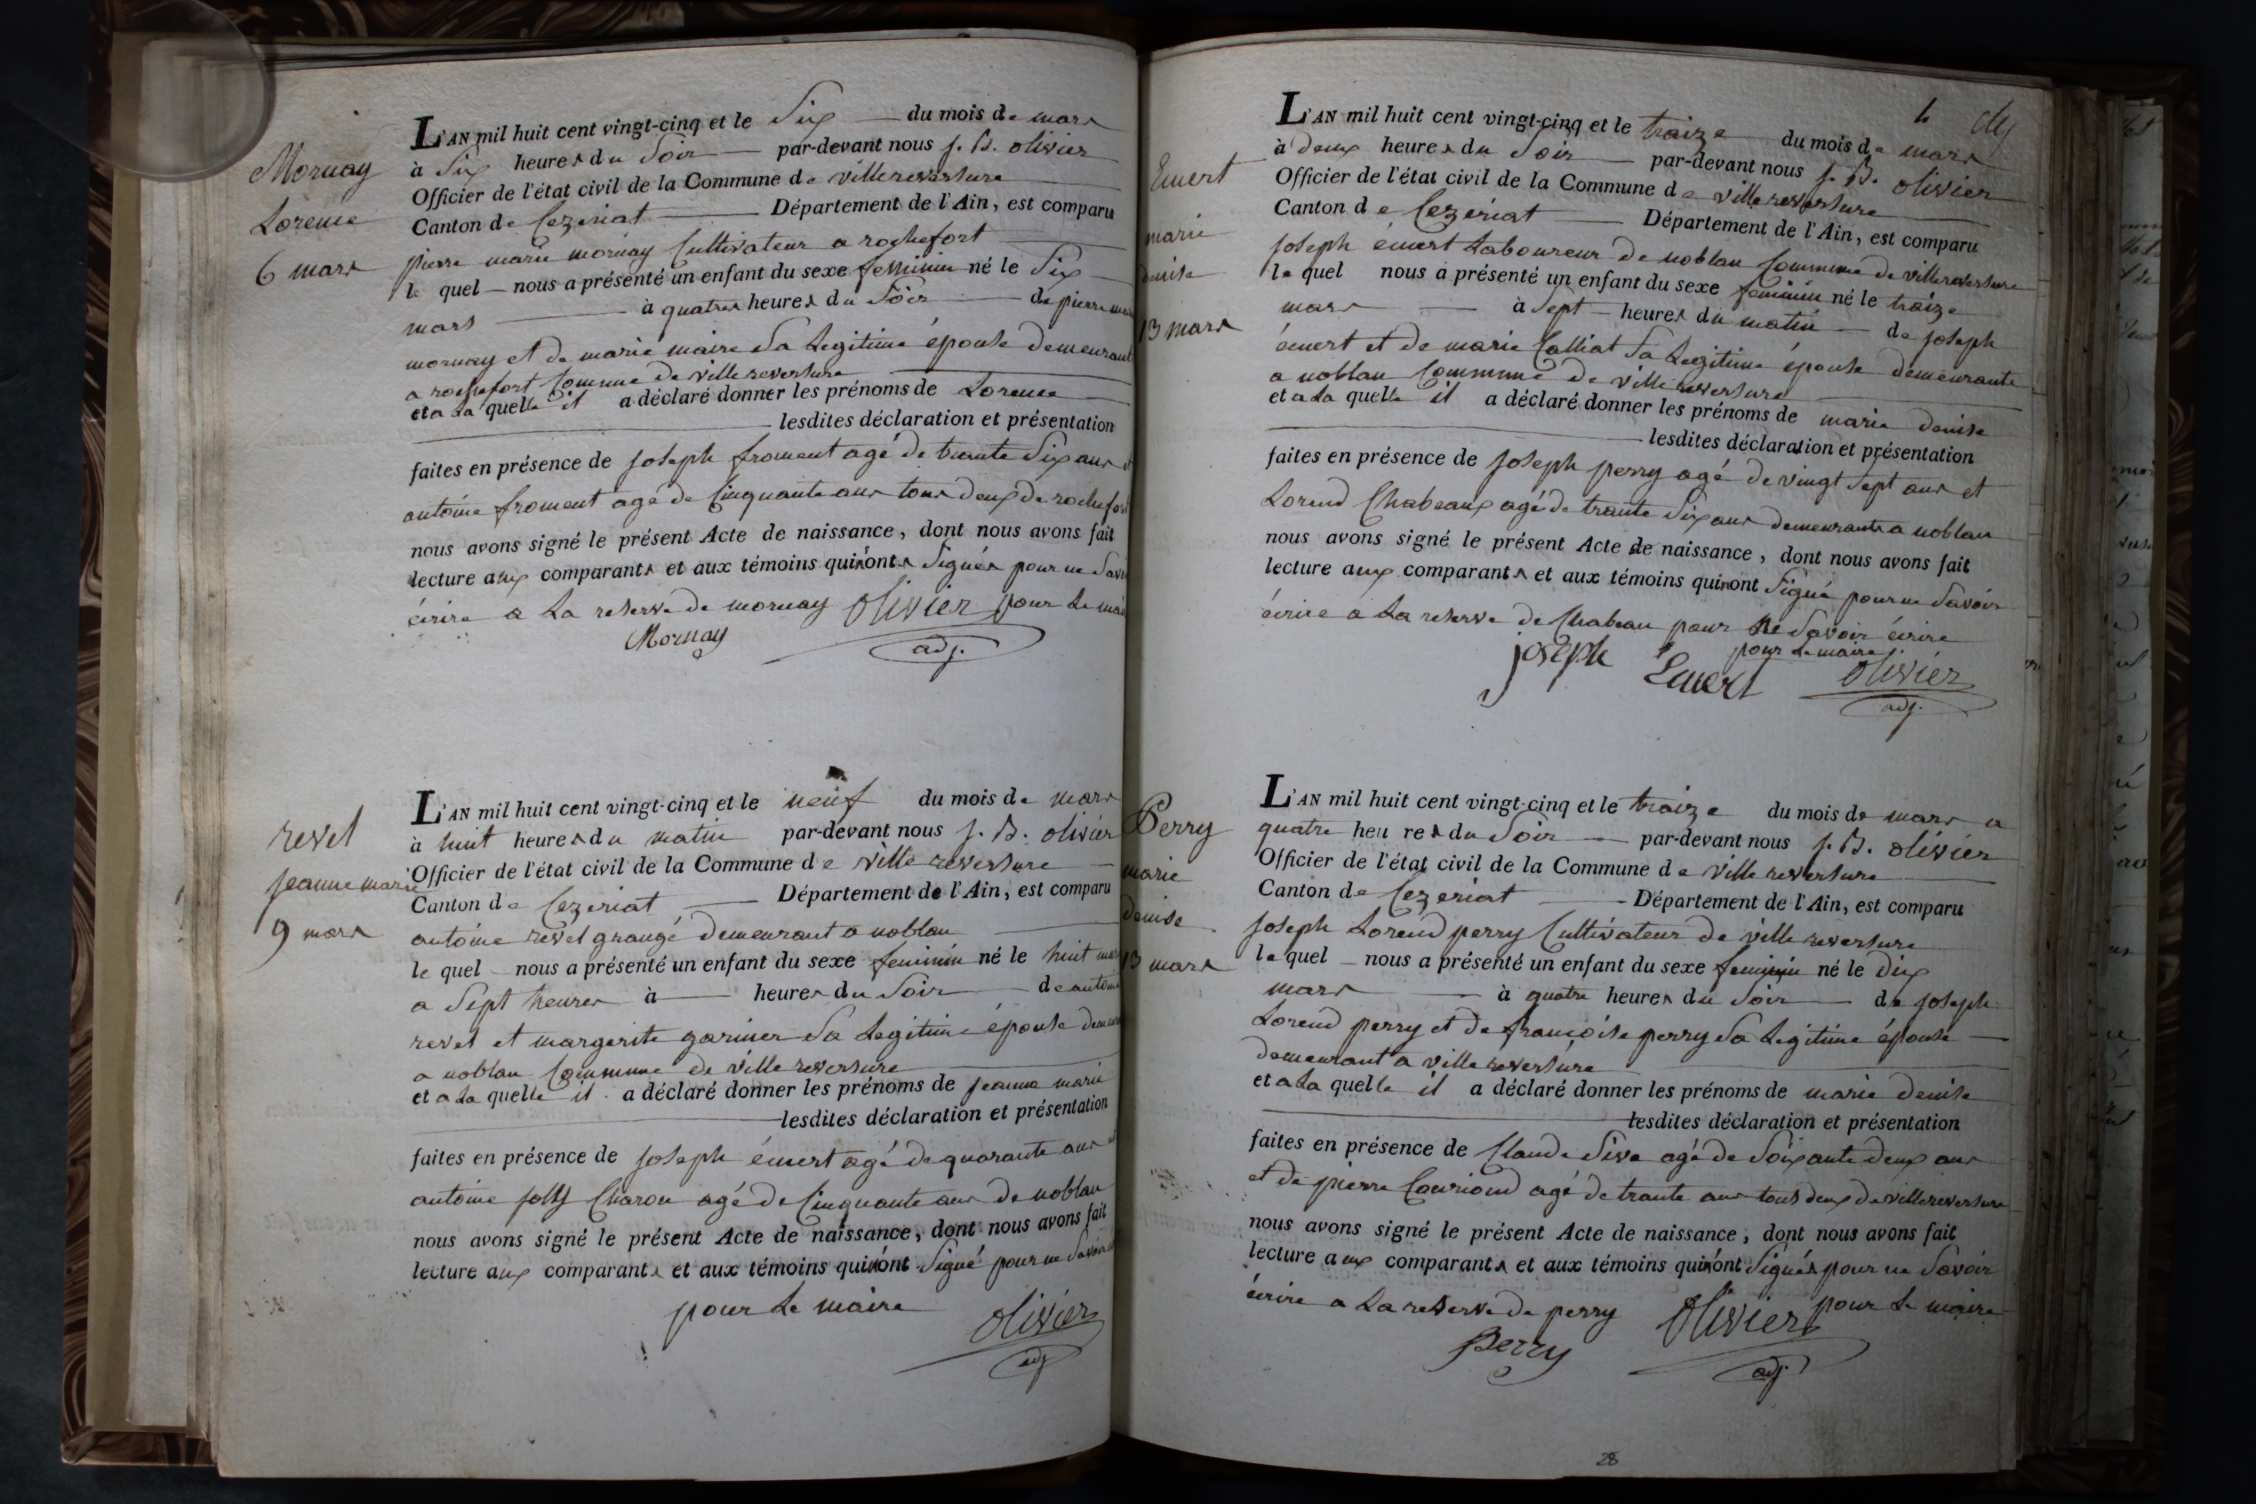 Mornay
Lorence
6 mars
L'AN mil huit cent vingt-cinq et le Six du mois de mars
à Six heures du Soir par-devant nous j. B. olivier
Officier de l'état civil de la Commune de villereversure
Canton de Cezeriat Département de l'Ain, est comparu
pierre marie mornay Cultivateur a rochefort
le quel nous a présenté un enfant du sexe feminin né le Six
mars à quatres heures du Soir de pierre marie
mornay et de marie maire Sa Legitime épouse demeurant
a rochefort Commune de villereversure
et a La quelle il a déclaré donner les prénoms de Lorence
lesdites déclaration et présentation
faites en présence de joseph froment agé de trente Six ans et
antoine froment agé de Cinquante ans tous deux de rochefort
nous avons signé le présent Acte de naissance, dont nous avons fait
lecture aux comparants et aux témoins qui n'ont Signés pour ne Savoir
écrire a La reserve de mornay olivier pour Le maire
Mornay adj.
revel
jeanne marie
9 mars
L'AN mil huit cent vingt-cinq et le neuf du mois de mars
à huit heures du matin par-devant nous j. B. olivier
Officier de l'état civil de la Commune de ville reversure
Canton de Cezeriat Département de l'Ain, est comparu
antoine revel grangé demeurant a noblan
le quel nous a présenté un enfant du sexe feminin né le huit mars
a Sept heures à heures du Soir de antoine
revel et margerite gariner Sa Legitime épouse
a noblan Commune de ville reversure
et a La quelle il a déclaré donner les prénoms de jeanne marie
lesdites déclaration et présentation
faites en présence de joseph émert agé de quarante ans et
antoine jolly Charon agé de Cinquante ans de noblan
nous avons signé le présent Acte de naissance, dont nous avons fait
lecture aux comparants et aux témoins qui n'ont Signé pour ne Savoir
pour Le maire olivier
adj
4
Emert
marie
denise
13 mars
L'AN mil huit cent vingt-cinq et le traize du mois de mars
à deux heures du Soir par-devant nous j. B. olivier
Officier de l'état civil de la Commune de ville reversure
Canton de Cezeriat Département de l'Ain, est comparu
joseph émert Laboureur de noblan Commune de villereversure
le quel nous a présenté un enfant du sexe feminin né le traize
mars à Sept heures du matin de joseph
émert et de marie Calliat Sa Legitime épouse demeurante
a noblan Commune de ville reversure
et a La quelle il a déclaré donner les prénoms de marie denise
lesdites déclaration et présentation
faites en présence de joseph perry agé de vingt Sept ans et
Lorend Chabeaux agé de trante Six ans demeurants a noblan
nous avons signé le présent Acte de naissance, dont nous avons fait
lecture aux comparants et aux témoins qui n ont Signé pour ne Savoir
écrire a La reserve de Chabeau pour Ne Savoir écrire
pour Le maire
joseph Emert olivier
adj.
Perry
marie
denise
13 mars
L'AN mil huit cent vingt-cinq et le traize du mois de mars a
quatre heures du Soir par-devant nous j. B. olivier
Officier de l'état civil de la Commune de ville reversure
Canton de Cezeriat Département de l'Ain, est comparu
joseph Lorend perry Cultivateur de ville reversure
le quel nous a présenté un enfant du sexe feminin né le dix
mars à quatre heures du Soir de joseph
Lorend perry et de françoise perry Sa Legitime épouse
demeurant a ville reversure
et a La quelle il a déclaré donner les prénoms de marie denise
lesdites déclaration et présentation
faites en présence de Claude Sive agé de Soixante deux ans
et de pierre Couriond agé de trante ans tous deux de villereversure
nous avons signé le présent Acte de naissance, dont nous avons fait
lecture aux comparants et aux témoins qui n'ont Signés pour ne Savoir
écrire a La reserve de perry olivier pour Le maire
Perry adj.
28